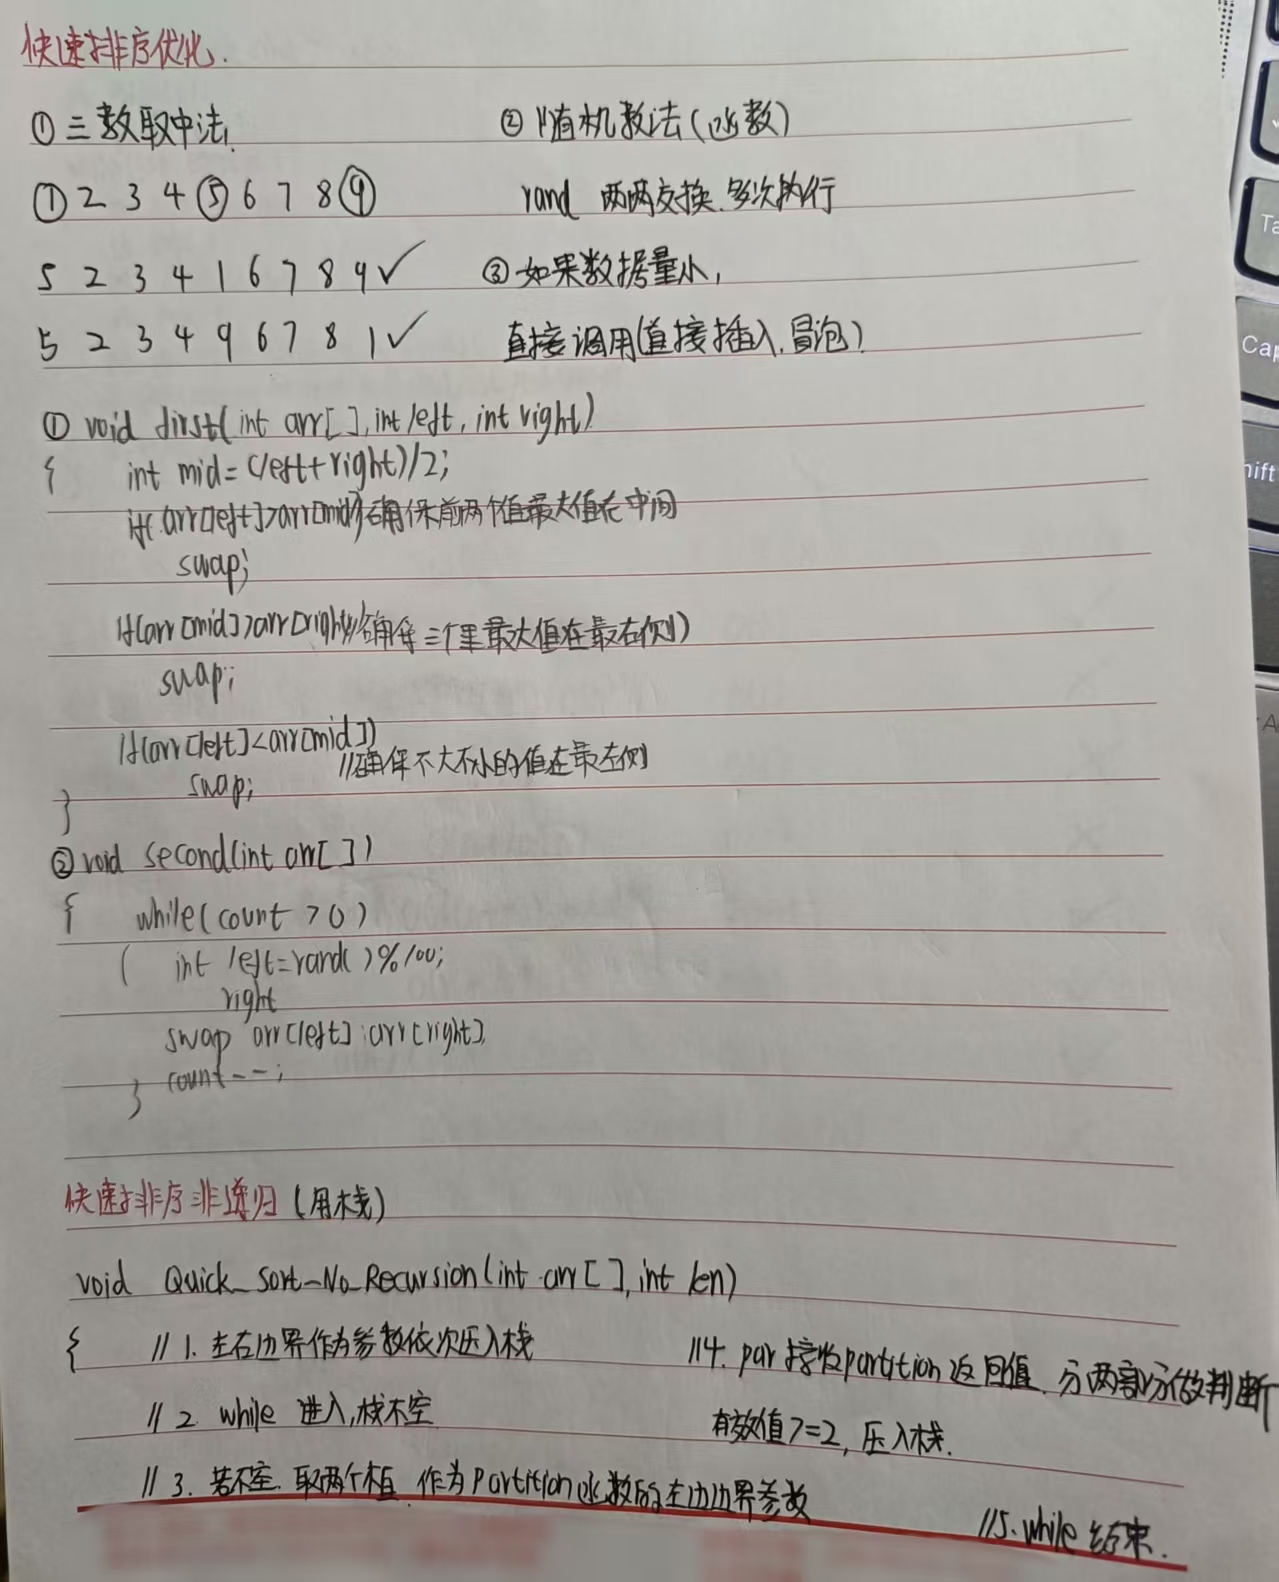 快速排序优化.
① 三数取中法.
① 2 3 4 ⑤ 6 7 8 ⑨
5 2 3 4 1 6 7 8 9 ✓
5 2 3 4 9 6 7 8 1 ✓
② 随机数法(函数)
rand 两两交换.多次执行
③ 如果数据量小,
直接调用(直接插入.冒泡)
① void first(int arr[],int left, int right)
{ int mid=(left+right)/2;
if(arr[left]>arr[mid])确保前两个值最大值在中间
swap;
if(arr[mid]>arr[right]//确保三个里最大值在最右侧)
swap;
if(arr[left]<arr[mid])
//确保不大不小的值在最左侧
swap;
}
② void second(int arr[ ])
{ while(count >0)
{ int left=rand( )%100;
right
swap arr[left] arr[right],
count--;
}
快速排序非递归(用栈)
void Quick_Sort_No_Recursion(int arr[ ],int len)
{ // 1. 左右边界作为参数依次压入栈
// 2 while 进入,栈不空
// 3. 若不空.取两个值.作为Partition函数的左边边界参数
//4. par接收partition返回值.分两部分做判断
有效值>=2, 压入栈.
//5.while结束.